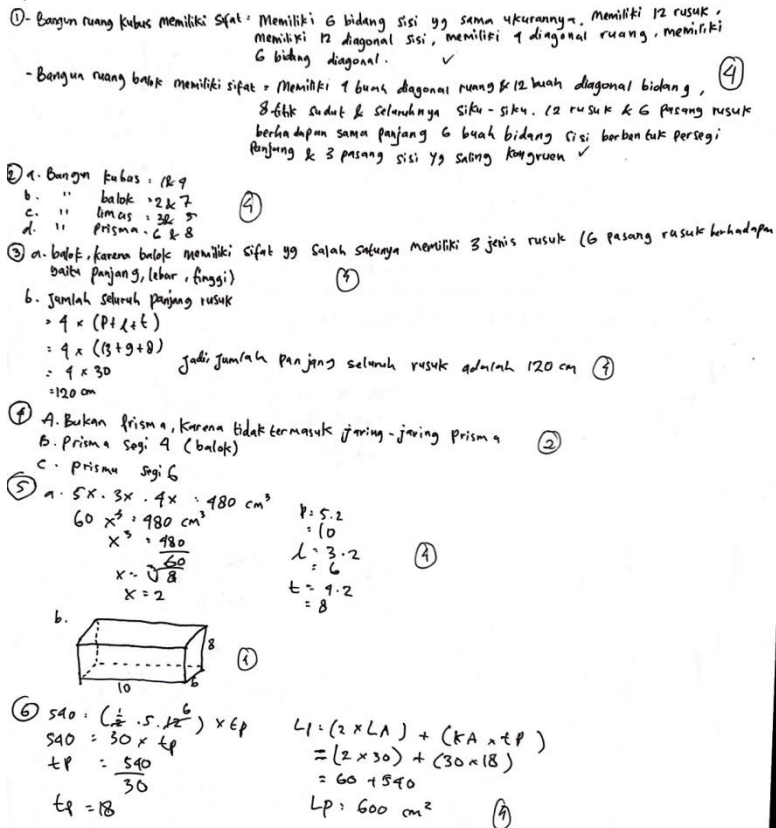 ① - Bangun ruang kubus memiliki sifat : Memiliki 6 bidang sisi yg sama ukurannya, memiliki 12 rusuk,
memiliki 12 diagonal sisi, memiliki 4 diagonal ruang, memiliki
6 bidang diagonal. ✓
- Bangun ruang balok memiliki sifat = Memiliki 4 buah diagonal ruang & 12 buah diagonal bidang, ④
8 titik sudut & seluruhnya siku-siku. 12 rusuk & 6 pasang rusuk
berhadapan sama panjang 6 buah bidang sisi berbentuk persegi
panjang & 3 pasang sisi yg saling kongruen ✓
② a. Bangun kubus : 1 & 4
b. " balok : 2 & 7
c. " limas : 3 & 5 ④
d. " prisma : 6 & 8
③ a. balok, karena balok memiliki sifat yg salah satunya memiliki 3 jenis rusuk (6 pasang rusuk berhadapan
yaitu panjang, lebar, tinggi)
b. Jumlah seluruh panjang rusuk
= 4 × (p + l + t)
= 4 × (13 + 9 + 8)
= 4 × 30 Jadi, jumlah panjang seluruh rusuk adalah 120 cm ④
= 120 cm
④ A. Bukan prisma, karena tidak termasuk jaring-jaring prisma
B. Prisma segi 4 (balok) ②
C. prisma segi 6
⑤ a. 5x . 3x . 4x = 480 cm³
60 x³ = 480 cm³
x³ = 480/60
x = ∛8
x = 2
p = 5.2
= 10
l = 3.2
= 6
t = 4.2
= 8
④
b.
8
10
6
⑥ 540 = (½ . 5 . 12 6) × tp
540 = 30 × tp
tp = 540/30
tp = 18
Lp = (2 × LA) + (KA × tp)
= (2 × 30) + (30 × 18)
= 60 + 540
Lp = 600 cm²
④